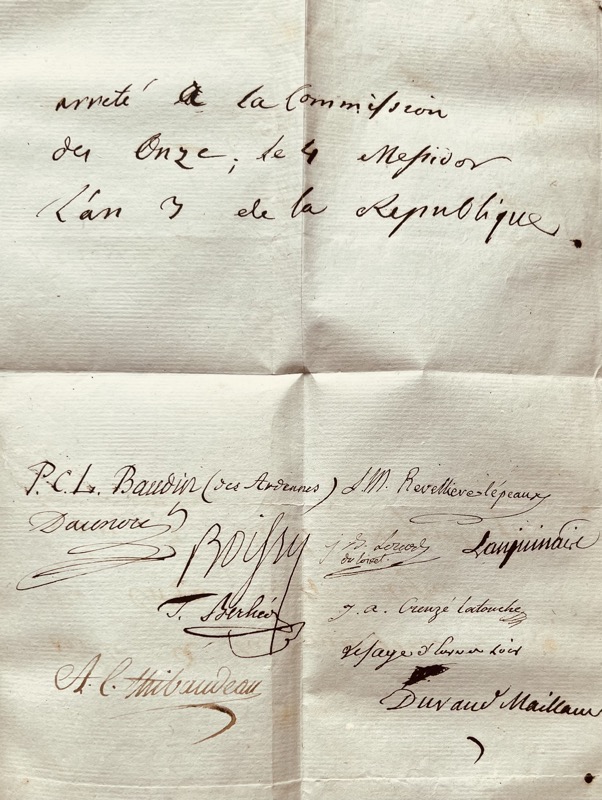 arreté a la Commission
des Onze, le 4 Messidor
L'an 3 de la Republique.
P. C. L. Baudin (des Ardennes) L. M. Revelliere-lépeaux
Daunou
Boissy
J. B. Louvet Lanjuinais
du Loiret.
T. Berlier
J. a. Creuzé latouche
Lesage d'Eure et Loir
A. C. thibaudeau
Durand Maillane